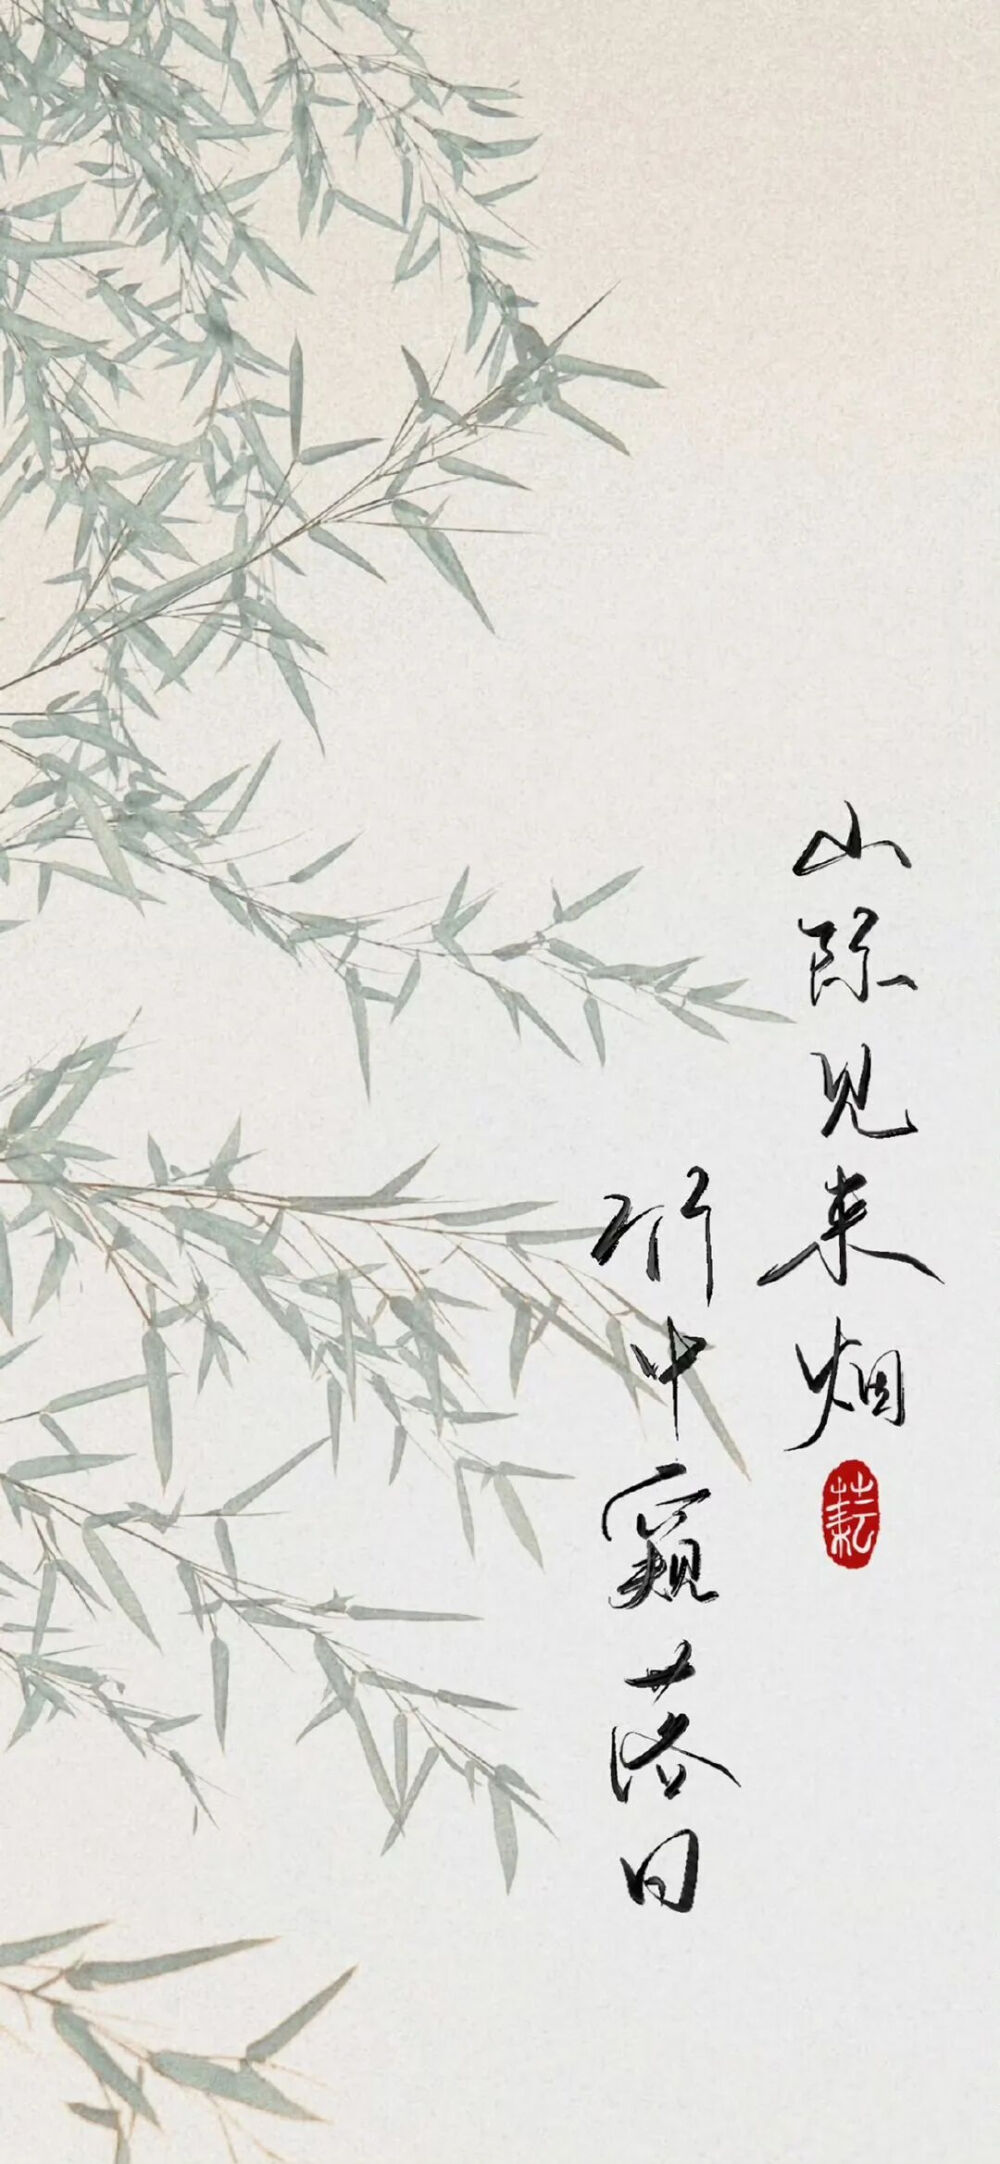 山际见来烟
竹中窥落日